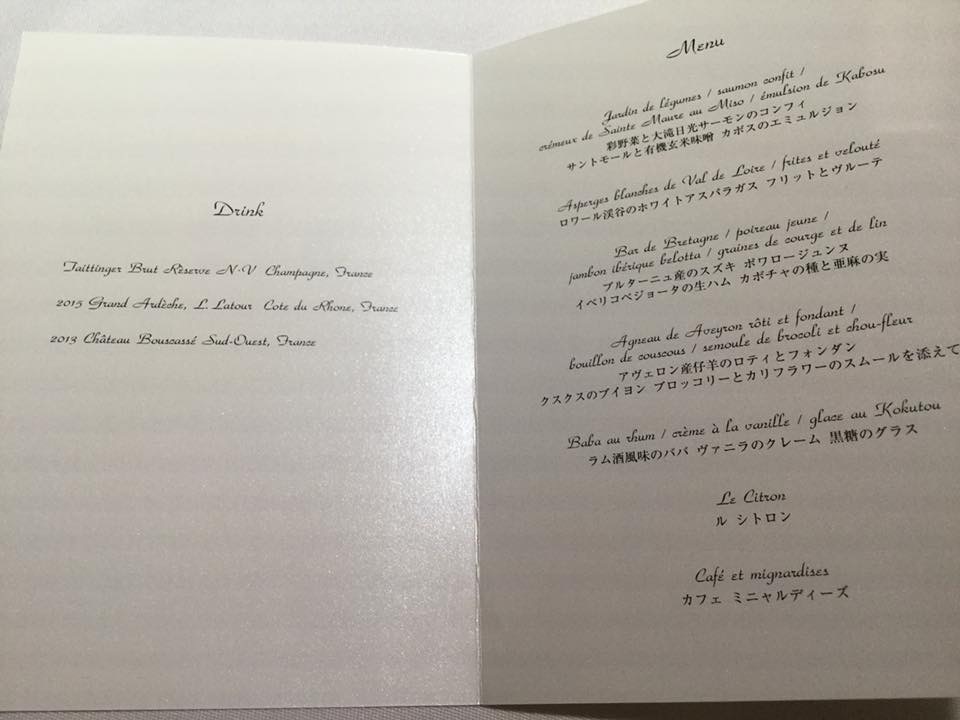 Drink
Taittinger Brut Rèserve N·V Champagne, France
2015 Grand Ardèche, L. Latour Cote du Rhone, France
2013 Château Bouscassé Sud-Ouest, France
Menu
Jardin de légumes / saumon confit /
crémeux de Sainte Maure au Miso / émulsion de Kabosu
彩野菜と大滝日光サーモンのコンフィ
サントモールと有機玄米味噌 カボスのエミュルジョン
Asperges blanches de Val de Loire / frites et velouté
ロワール渓谷のホワイトアスパラガス フリットとヴルーテ
Bar de Bretagne / poireau jeune /
jambon ibérique belotta / graines de courge et de lin
ブルターニュ産のスズキ ポワロージュンヌ
イベリコベジョータの生ハム カボチャの種と亜麻の実
Agneau de Aveyron rôti et fondant /
bouillon de couscous / semoule de brocoli et chou-fleur
アヴェロン産仔羊のロティとフォンダン
クスクスのブイヨン ブロッコリーとカリフラワーのスムールを添えて
Baba au rhum / crème à la vanille / glace au Kokutou
ラム酒風味のババ ヴァニラのクレーム 黒糖のグラス
Le Citron
ル シトロン
Café et mignardises
カフェ ミニャルディーズ